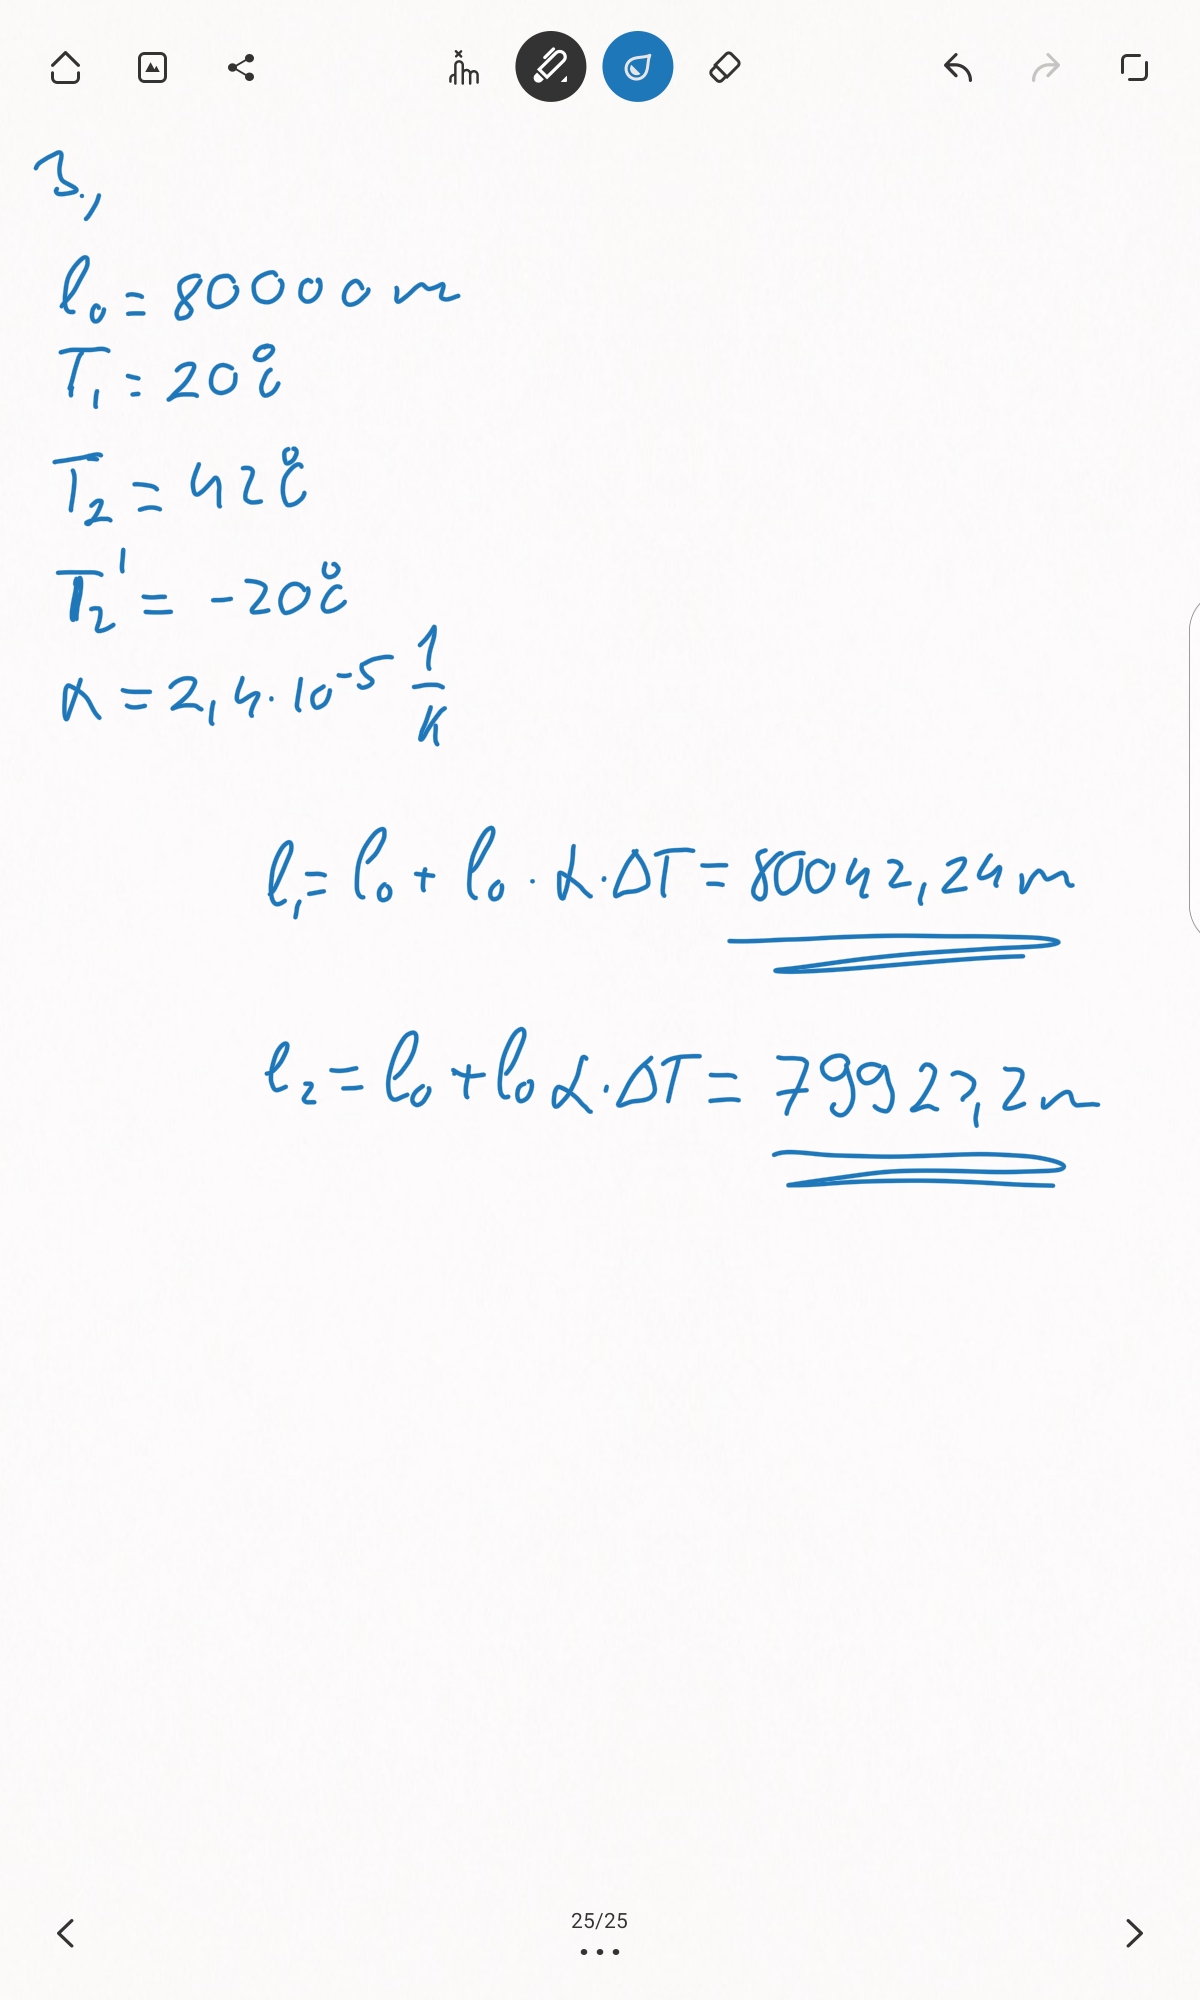 3.,
l₀ = 80000 m
T₁ = 20°C
T₂ = 42°C
T₂' = -20°C
α = 2,4·10⁻⁵ 1/K
l₁ = l₀ + l₀ · α · ΔT = 80042,24 m
l₂ = l₀ + l₀ α · ΔT = 79923,2 m
25/25